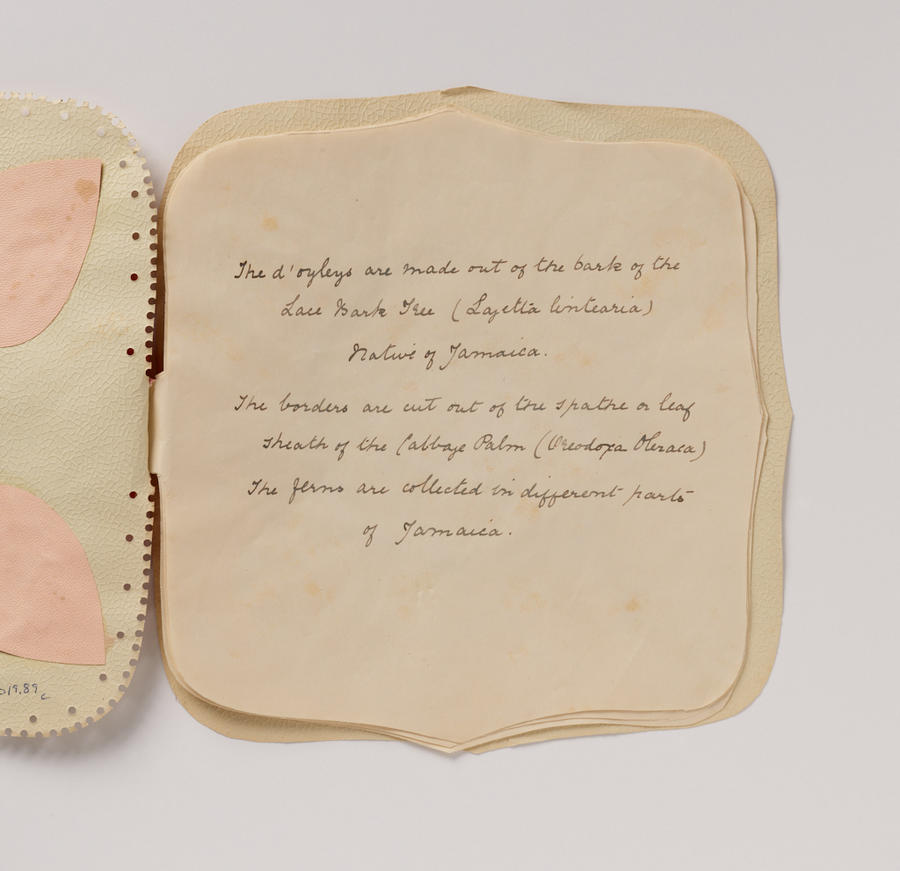 The d'oyleys are made out of the bark of the
Lace Bark Tree (Lagetta lintearia)
Native of Jamaica.
The borders are cut out of the spathe or leaf
sheath of the Cabbage Palm (Oreodoxa Oleraca)
The ferns are collected in different parts
of Jamaica.
19.89
c